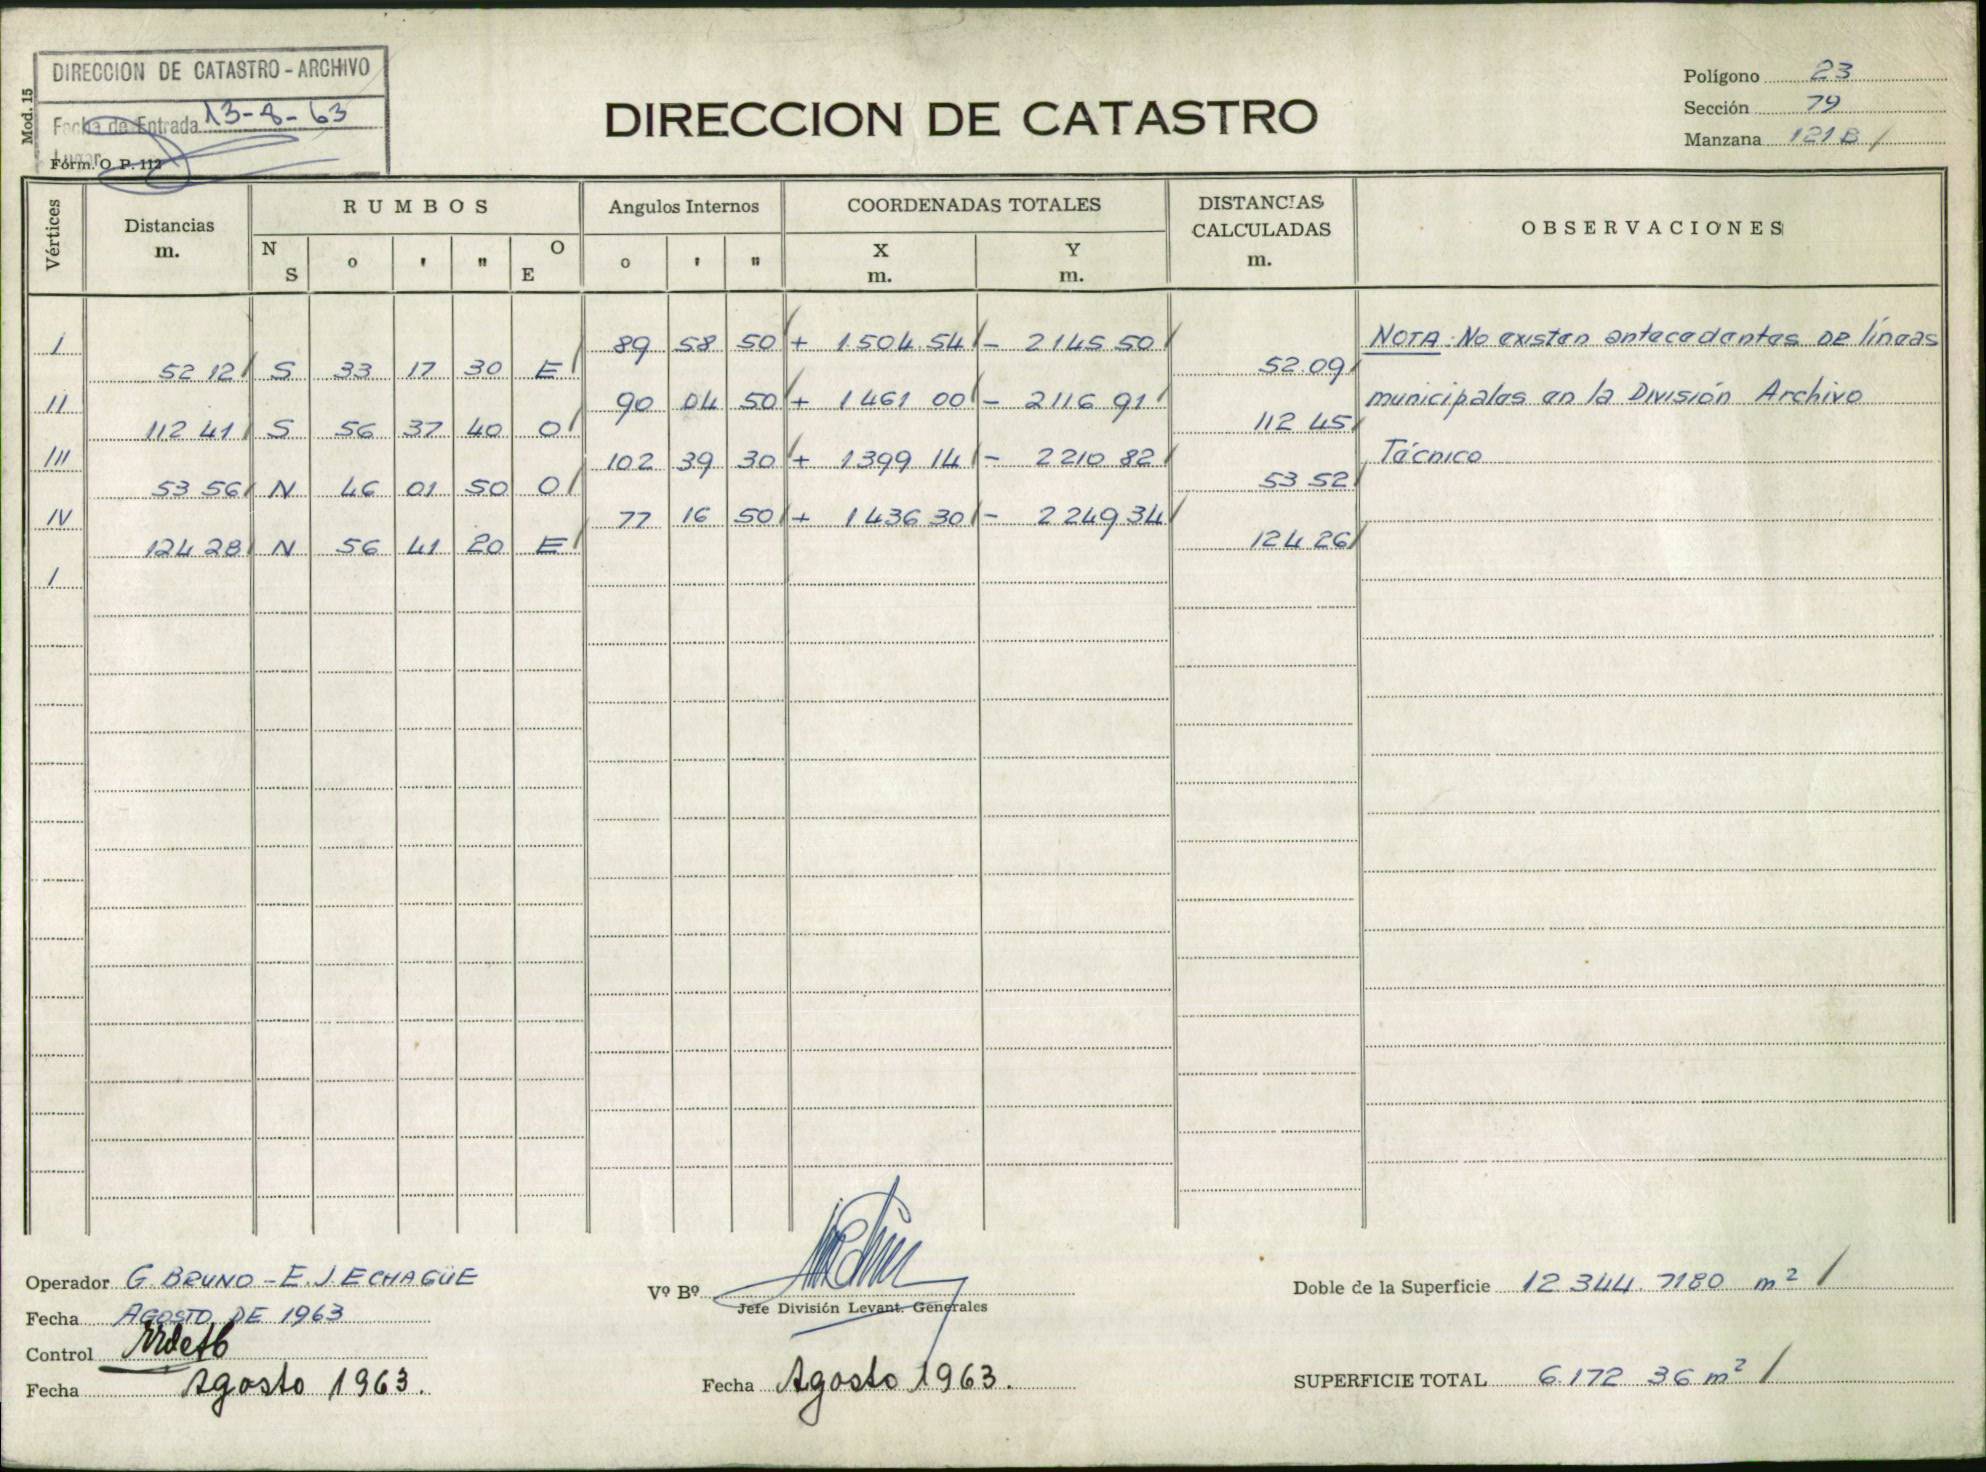 DIRECCION DE CATASTRO - ARCHIVO
Fecha de Entrada 13-8-63
Lugar
Mod. 15
Form. O. P. 112
DIRECCION DE CATASTRO
Polígono 23
Sección 79
Manzana 121 B /
Vértices
Distancias
m.
RUMBOS
N
S
o
'
"
O
E
Angulos Internos
o
'
"
COORDENADAS TOTALES
X
m.
Y
m.
DISTANCIAS
CALCULADAS
m.
OBSERVACIONES
I 89 58 50 + 1504.54 - 2145 50 NOTA: No existen antecedentes DE líneas
52 12 S 33 17 30 E 52.09
II 90 04 50 + 1461 00 - 2116 91 municipales en la División Archivo
112 41 S 56 37 40 O 112 45
III 102 39 30 + 1399 14 - 2210 82 Técnico
53 56 N 46 01 50 O 53 52
IV 77 16 50 + 1436 30 - 2249 34
124 28 N 56 41 20 E 124 26
I
Operador G. BRUNO - E. J. ECHAGÜE
Fecha AGOSTO DE 1963
Control
Fecha Agosto 1963.
Vº Bº
Jefe División Levant. Generales
Fecha Agosto 1963.
Doble de la Superficie 12 344. 7180 m² /
SUPERFICIE TOTAL 6.172 36 m² /